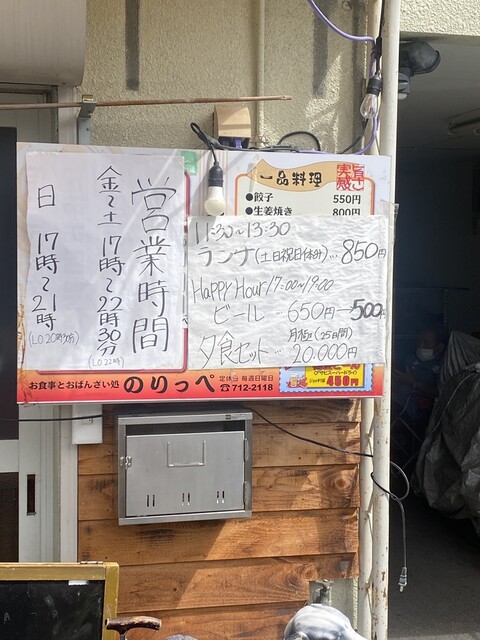 営業時間
金〜土 17時〜22時30分
(L.O 22時)
日 17時〜21時
(L.O 20時30分)
一品料理
実感
●餃子 550円
●生姜焼き 800円
11:30~13:30
ランチ(土日祝日休み)…850円
Happy Hour 17:00~19:00
ビール…650円→500円
夕食セット…月極(25日間)
20,000円
お食事とおばんざい処 のりっぺ
定休日 毎週日曜日
☎712-2118
450円